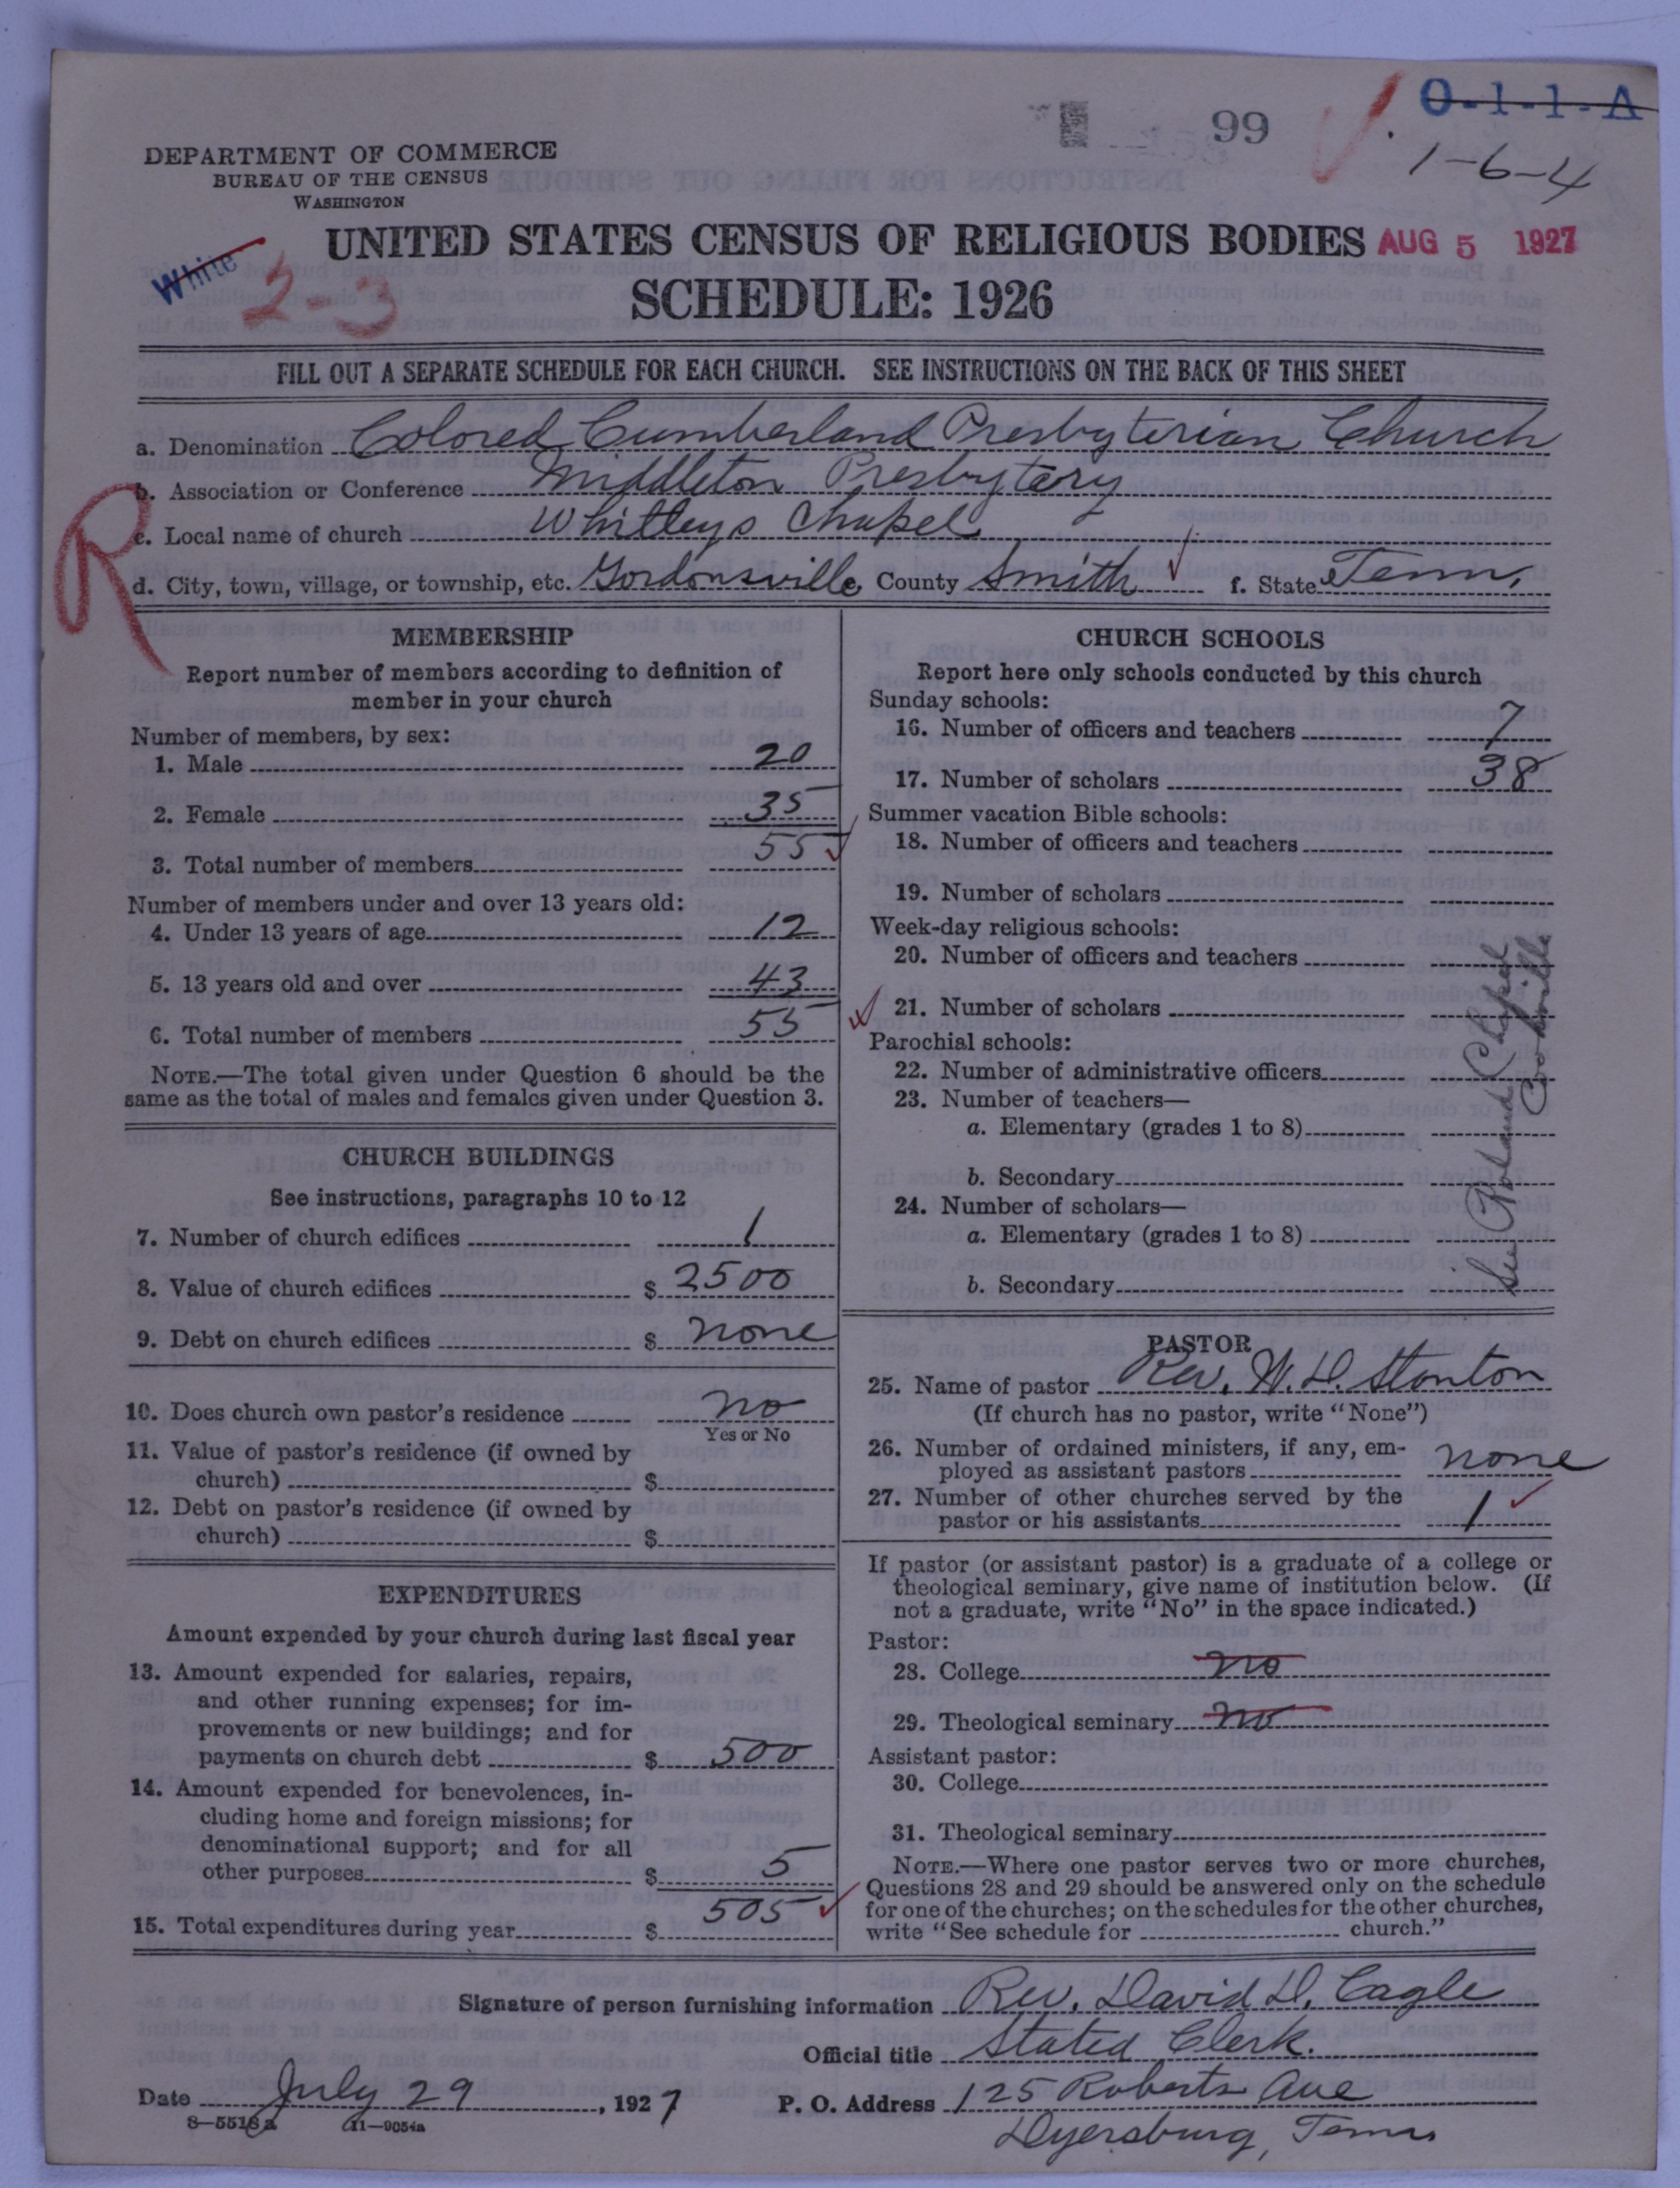 99
O-1-1-A
1-6-4
DEPARTMENT OF COMMERCE
BUREAU OF THE CENSUS
WASHINGTON
UNITED STATES CENSUS OF RELIGIOUS BODIES AUG 5 1927
White
2-3
SCHEDULE: 1926
FILL OUT A SEPARATE SCHEDULE FOR EACH CHURCH. SEE INSTRUCTIONS ON THE BACK OF THIS SHEET
a. Denomination Colored Cumberland Presbyterian Church
b. Association or Conference Middleton Presbytery
R
c. Local name of church Whitleys Chapel
d. City, town, village, or township, etc. Gordonsville County Smith f. State Tenn.
MEMBERSHIP
Report number of members according to definition of
member in your church
Number of members, by sex:
1. Male 20
2. Female 35
3. Total number of members 55
Number of members under and over 13 years old:
4. Under 13 years of age 12
5. 13 years old and over 43
6. Total number of members 55
NOTE.—The total given under Question 6 should be the
same as the total of males and females given under Question 3.
CHURCH BUILDINGS
See instructions, paragraphs 10 to 12
7. Number of church edifices 1
8. Value of church edifices $ 2500
9. Debt on church edifices $ none
10. Does church own pastor's residence no
Yes or No
11. Value of pastor's residence (if owned by
church) $
12. Debt on pastor's residence (if owned by
church) $
EXPENDITURES
Amount expended by your church during last fiscal year
13. Amount expended for salaries, repairs,
and other running expenses; for im-
provements or new buildings; and for
payments on church debt $ 500
14. Amount expended for benevolences, in-
cluding home and foreign missions; for
denominational support; and for all
other purposes $ 5
15. Total expenditures during year $ 505
CHURCH SCHOOLS
Report here only schools conducted by this church
Sunday schools:
16. Number of officers and teachers 7
17. Number of scholars 38
Summer vacation Bible schools:
18. Number of officers and teachers
19. Number of scholars
Week-day religious schools:
20. Number of officers and teachers
21. Number of scholars
Parochial schools:
22. Number of administrative officers
23. Number of teachers—
a. Elementary (grades 1 to 8)
b. Secondary
24. Number of scholars—
a. Elementary (grades 1 to 8)
b. Secondary
See Roland Chapel
Cookville
PASTOR
25. Name of pastor Rev. W. D. Stanton
(If church has no pastor, write "None")
26. Number of ordained ministers, if any, em-
ployed as assistant pastors none
27. Number of other churches served by the
pastor or his assistants 1
If pastor (or assistant pastor) is a graduate of a college or
theological seminary, give name of institution below. (If
not a graduate, write "No" in the space indicated.)
Pastor:
28. College no
29. Theological seminary no
Assistant pastor:
30. College
31. Theological seminary
NOTE.—Where one pastor serves two or more churches,
Questions 28 and 29 should be answered only on the schedule
for one of the churches; on the schedules for the other churches,
write "See schedule for church."
Signature of person furnishing information Rev. David D. Cagle
Official title Stated Clerk.
Date July 29, 1927 P. O. Address 125 Roberts Ave
8—5518a 11—9054a
Dyersburg, Tenn